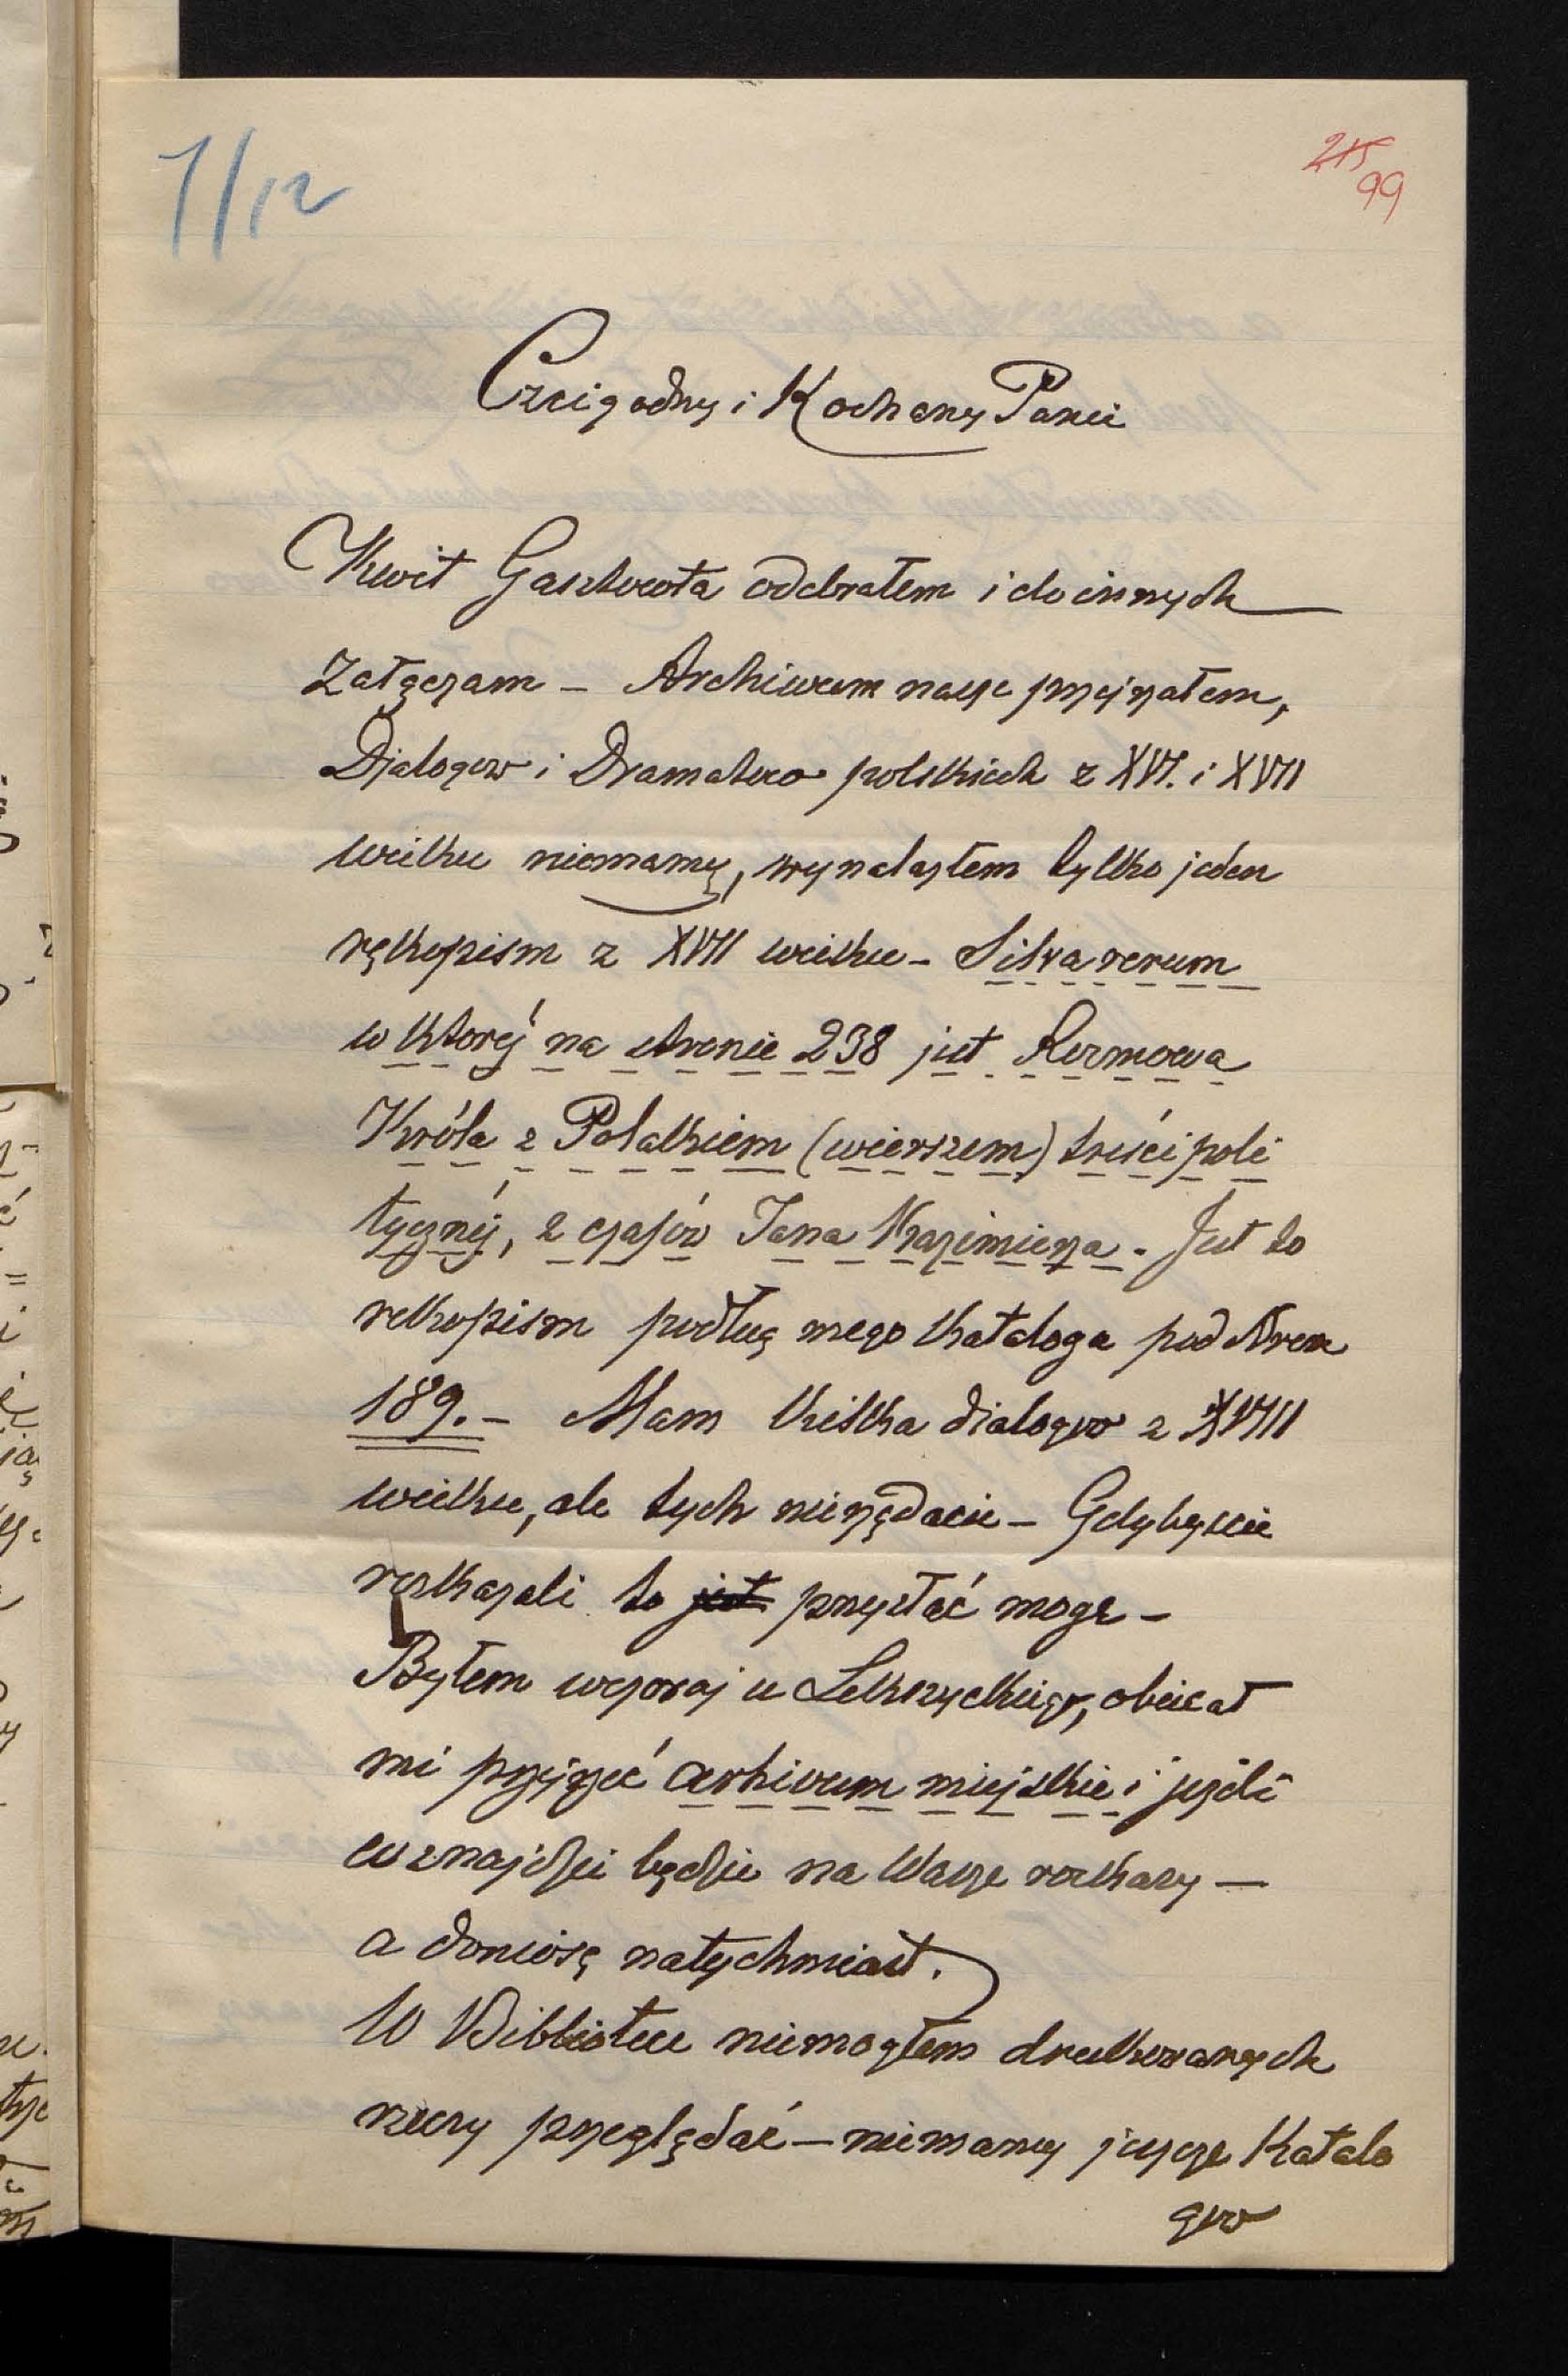 7/12
215
99
Czcigodny i Kochany Panie
Kwit Gasztowta odebrałem i do innych
załączam – Archiwum nasze przejrzałem,
Djalogów i Dramatów polskich z XVI. i XVII
wieku niemamy, wynalazłem tylko jeden
rękopism z XVII wieku – Silva rerum
w któréj na stronie 238 jest Rozmowa
Króla z Polakiem (wierszem) treści poli
tycznéj, z czasów Jana Kazimierza. Jest to
rekopism podług mego Kataloga pod Nrem
189. – Mam kilka dialogów z XVIII
wieku, ale tych nieżądacie – Gdybyscie
rozkazali to jest przysłać mogę –
Byłem wczoraj u Lekszyckiego, obiecał
mi przejrzeć archivum miejskie i jeżeli
co znajdzie będzie na Wasze rozkazy –
a doniosę natychmiast.
W Bibliotece niemogłem drukowanych
rzeczy przeglądać – niemamy jeszcze Katalo
gów